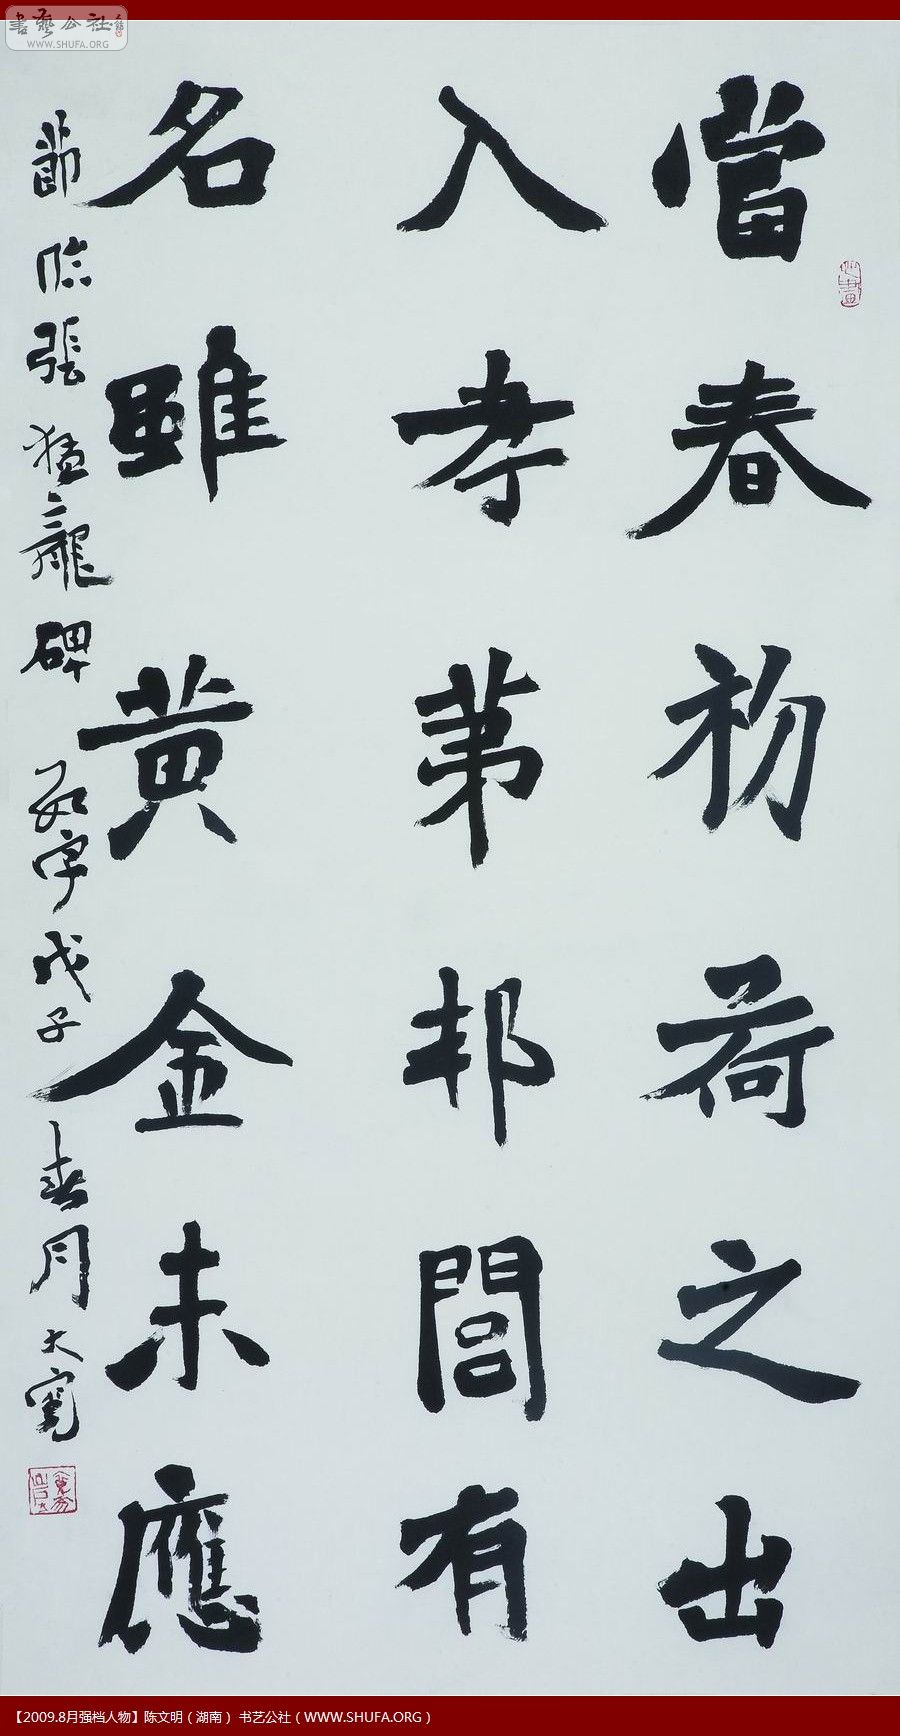 書藝公社
WWW.SHUFA.ORG
當春初荷之出
入孝第邦閭有
名雖黃金未應
節臨張猛龍碑数字戊子春月大寬
【2009.8月强档人物】陈文明（湖南） 书艺公社（WWW.SHUFA.ORG）